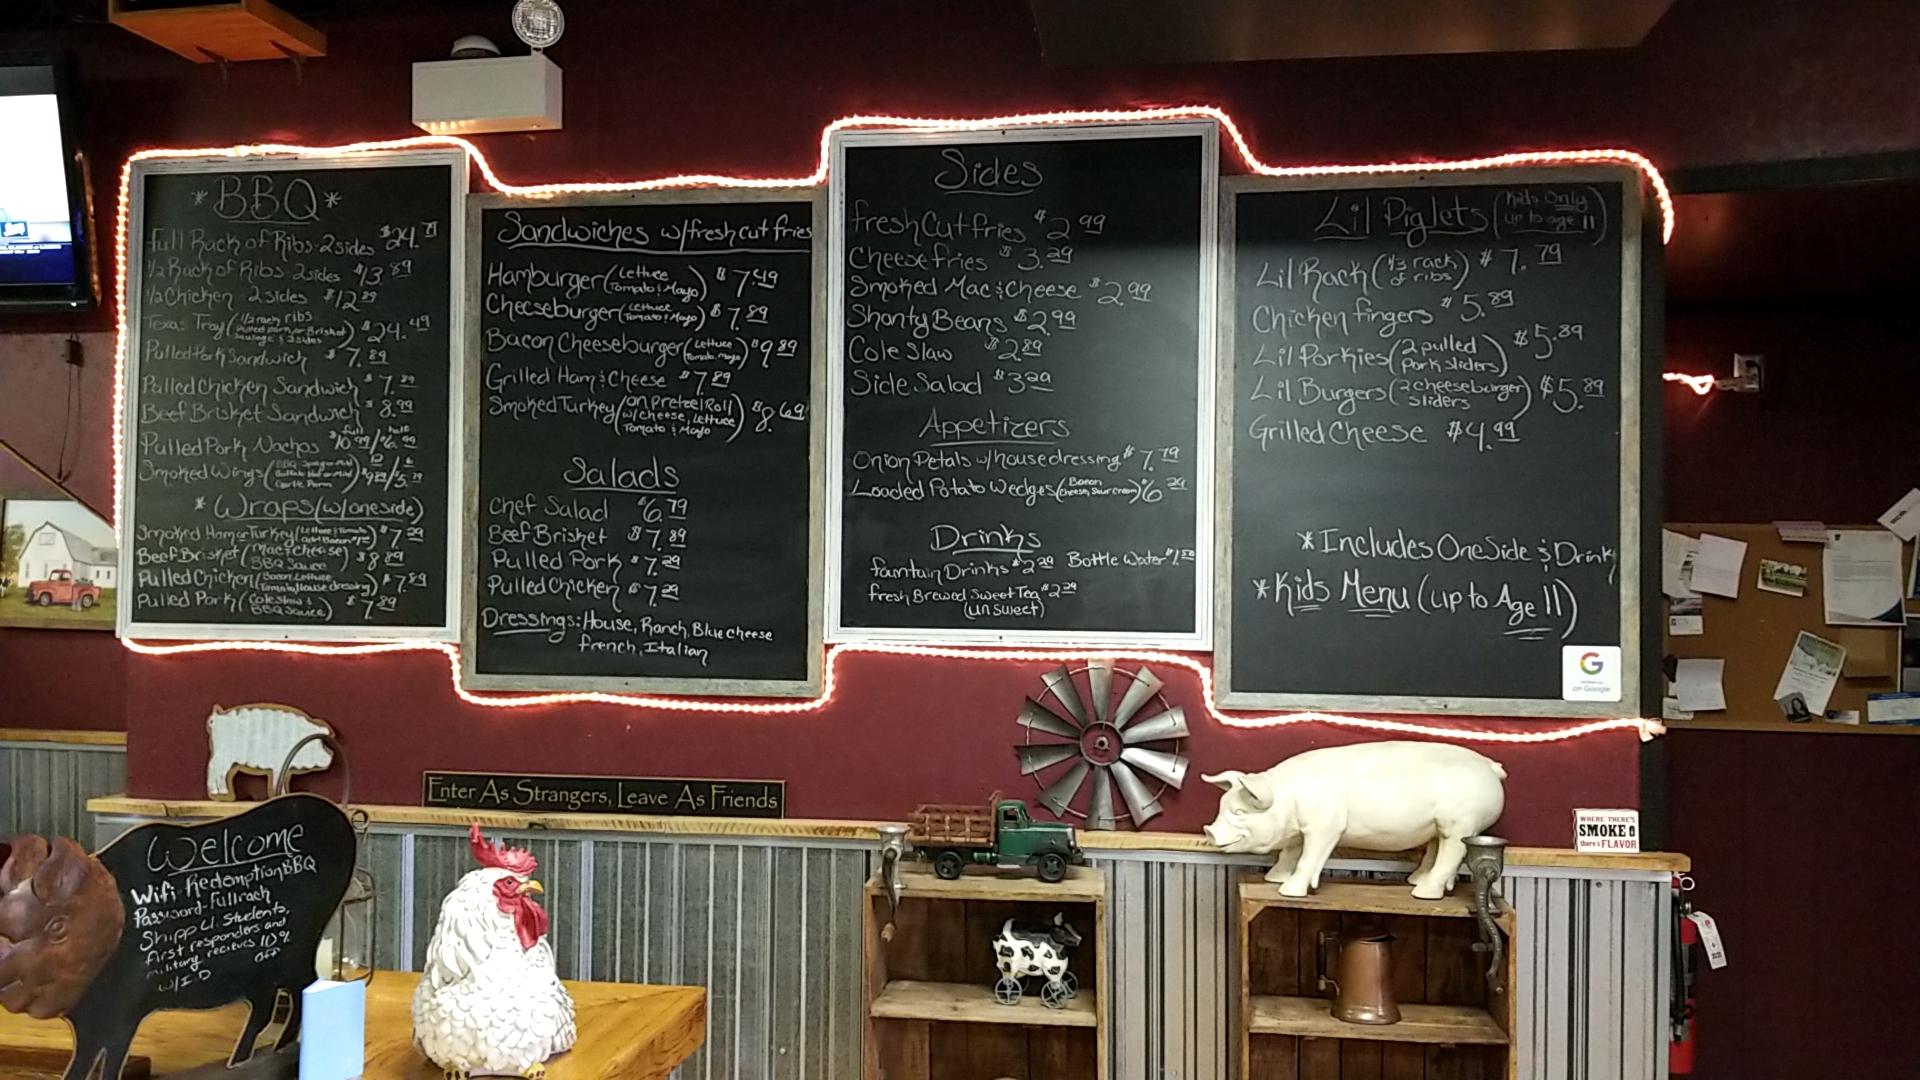 *BBQ*
Full Rack of Ribs-2sides $24.
1/2 Rack of Ribs-2sides $13 89
1/2 Chicken 2 sides $12 89
Texas Tray (1/2 rack ribs
Pulled Pork or Brisket
Sausage & 2 sides) $24.49
Pulled Pork Sandwich $7.89
Pulled Chicken Sandwich $7.89
Beef Brisket Sandwich $8.99
Pulled Pork Nachos full $10 99/half $6.99
Smoked Wings
*Wraps (w/one side)
Smoked Ham or Turkey (Lettuce & Tomato
add Bacon) $7.29
Beef Brisket (Mac & cheese
BBQ Sauce) $8 89
Pulled Chicken (Bacon Lettuce
Tomato/House dressing) $7.89
Pulled Pork (Coleslaw &
BBQ Sauce) $7.89
Sandwiches w/fresh cut fries
Hamburger (Lettuce
Tomato & Mayo) $7.49
Cheeseburger (Lettuce
Tomato & Mayo) $7.89
Bacon Cheeseburger (Lettuce
Tomato, Mayo) $9 89
Grilled Ham & Cheese $7 89
Smoked Turkey (on pretzel Roll
w/cheese, Lettuce
Tomato & Mayo) $8.69
Salads
Chef Salad $6.79
Beef Brisket $7.89
Pulled Pork $7.29
Pulled Chicken $7.29
Dressings: House, Ranch, Blue cheese
french, Italian
Sides
fresh Cut fries $2 99
Cheese fries $3.29
Smoked Mac & Cheese $2.99
Shanty Beans $2.99
Cole Slaw $2.89
Side Salad $3 29
Appetizers
Onion Petals w/house dressing $7.79
Loaded Potato Wedges (Bacon
Cheese, Sour cream) $6 29
Drinks
fountain Drinks $2 29 Bottle Water $1.50
fresh Brewed Sweet Tea $2 29
(unsweet)
Lil Piglets (Kids Only
up to age 11)
Lil Rack (1/3 rack
of ribs) $7.79
Chicken fingers $5.89
Lil Porkies (2 pulled
pork sliders) $5.89
Lil Burgers (2 cheeseburger
sliders) $5.89
Grilled Cheese $4.99
*Includes One Side & Drink
*Kids Menu (up to Age 11)
G
on Google
Enter As Strangers, Leave As Friends
WHERE THERE'S
SMOKE
there's FLAVOR
Welcome
Wifi-RedemptionBBQ
Password-fullrack
Shipp U. Students,
first responders and
military recieves 10%
off
w/I D